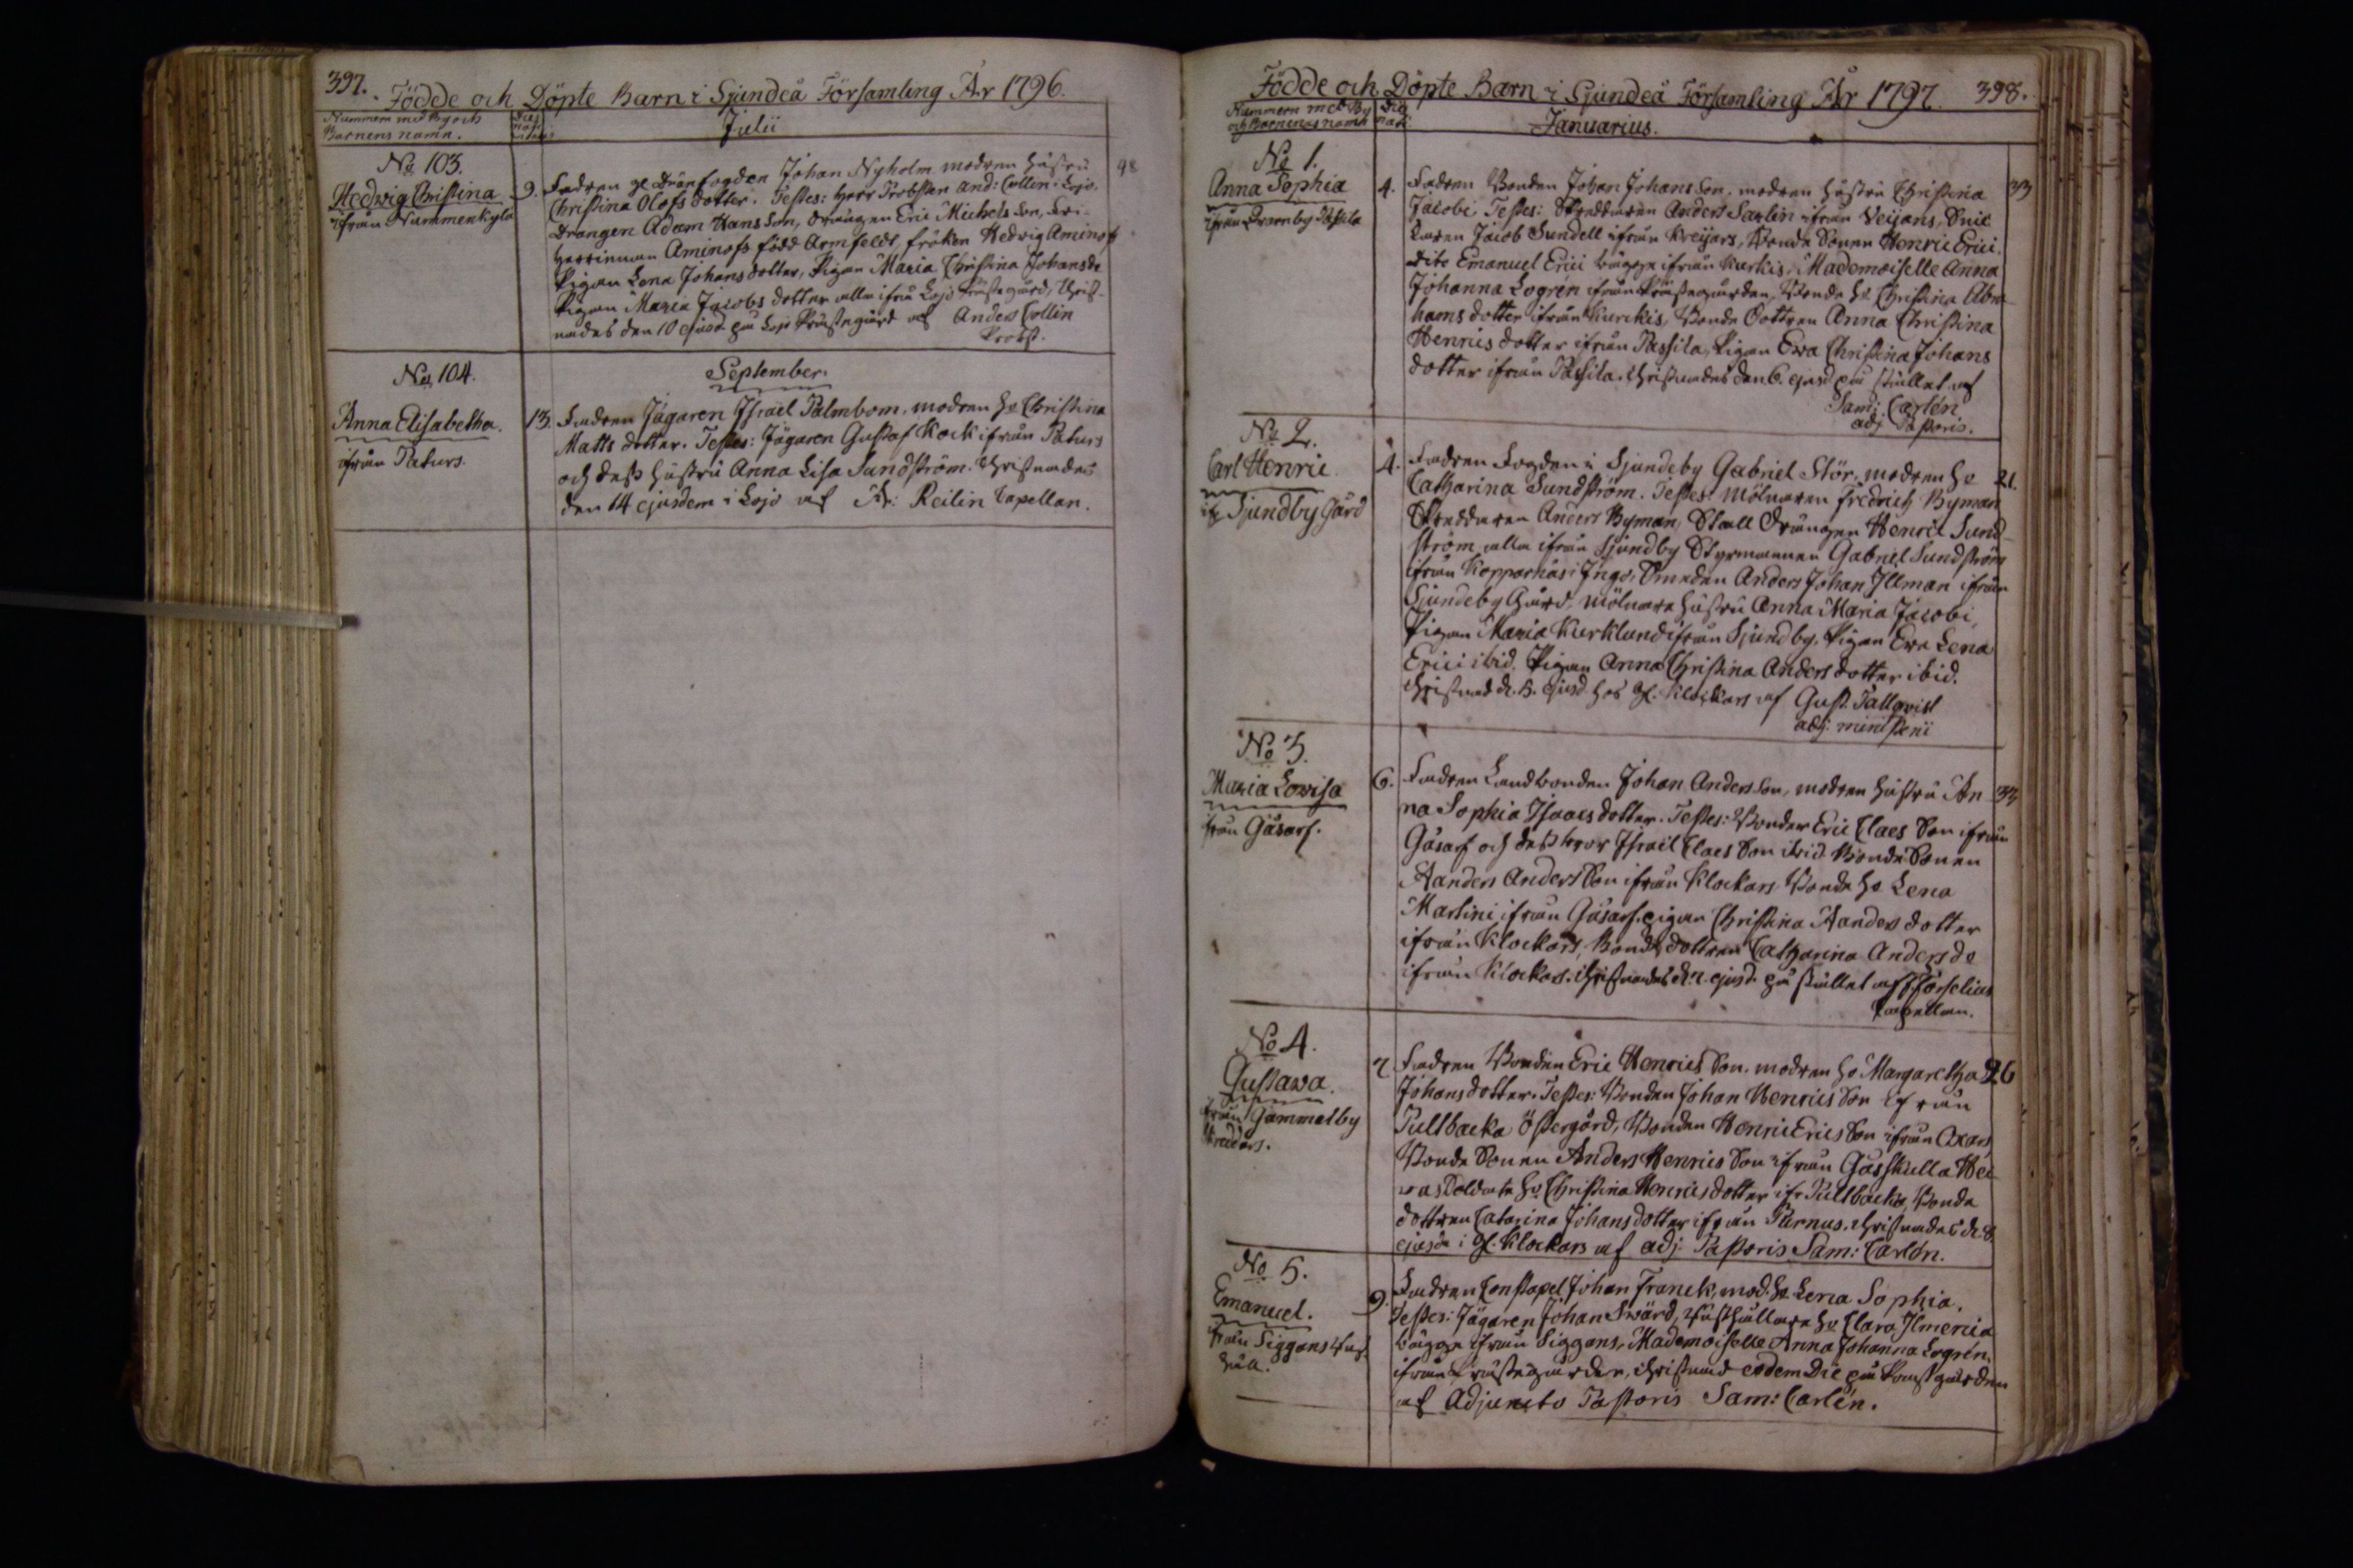 397. Födde och Döpte Barn i Sjundeå Församling År 1796.
Nummern med By och
Barnens namn.
Dies
nati
Julii
No 103.
Hedwig Christina
ifrån Nummenkylä
9. Fadren Johan Nyholm modren hustru 98
Christina Olofs dotter. Testes: Herr Probsten And: Collin i Lojo,
Drängen Adam Hans Son, drängen Eric Michels Son,
Aminoff född Armfeldt, fröken Hedwig Aminoff
Pigan Lena Johans dotter, Pigan Maria Christina Johans dr
Pigan Maria Jacobs dotter alla ifrån Lojo Prästegård, Christ-
nades den 10 ejusd. på Lojo Prästegård af Anders Collin
Probst.
No 104.
September.
Anna Elisabetha.
ifrån Paturs.
13. Fadren Jägaren Israel Palmbom, modren he Christina
Matts dotter. Testes: Jägaren Gustaf Kock ifrån Paturs
och dess hustru Anna Lisa Sundström. Christnades
den 14 ejusdem i Lojo af Reilin Capellan.
Födde och Döpte Barn i Sjundeå Församling År 1797. 398.
Nummern med By
och Barnenas namn
Die
nati
Januarius.
No 1.
Anna Sophia
ifrån Passila
4. Fadren Bonden Johan Johans Son, modren hustru Christina 33
Jacobi Testes: Skreddaren Anders Sarlin ifrån Veijans,
Jacob Sundell ifrån Kreijars, Bonde Sonen Henric Erici.
dito Emanuel Erici bägge ifrån Kurkis, Mademoiselle Anna
Johanna Logrén ifrån Prästegården, Bonde he Christina Abra-
hams dotter ifrån Kurckis, Bonde Dottren Anna Christina
Henrics dotter ifrån Passila, Pigan Ewa Christina Johans
dotter ifrån Passila. Christnades den 6. ejusd på stället af
Sam: Carlén
adj Pastoris.
No 2.
Carl Henric
Sjundby Gård
4. Fadren Fogden i Sjundeby Gabriel Stör, modren he 21.
Catharina Sundström. Testes: Mölnaren Fredrich Byman
Skreddaren Anders Byman, Stall Drängen Henric Sund-
ström alla ifrån Sjundby Styrmannen Gabriel Sundström
ifrån Kopparnäs i Ingo, Smeden Anders Johan Illman ifrån
Sjundeby Gård, Mölnare hustru Anna Maria Jacobi,
Pigan Maria Kurklund ifrån Sjundby, Pigan Ewa Lena
Erici ibid. Pigan Anna Christina Anders dotter ibid.
Christnad d. 5. ejusd. hos Gl. Klockars af Gust. Tallqvist
adj: ministerii
No 3.
Maria Lowisa
från Gåsarf.
6. Fadren Landbonden Johan Anders Son, modren hustru An- 33
na Sophia Isaacs dotter. Testes: Bonden Eric Claes Son ifrån
Gåsarf och dess bror Israel Claes Son ibid Bonde Sonen
Aanders Anders Son ifrån Klockars Bonde he Lena
Martini ifrån Gåsarf, pigan Christina Aanders dotter
ifrån Klockars, Bonde dottren Catharina Anders dr
ifrån Klockars. Christnades d: 7. ejusd. på stället af Forselius
Capellan.
No 4.
Gustawa.
från Gammelby
Skreddars.
7 Fadren Bonden Eric Henrics Son, modren he Margaretha 26
Johans dotter. Testes: Bonden Johan Henrics Son ifrån
Pullbacka Östergård, Bonden Henric Erics Son ifrån Oxars
Bonde Sonen Anders Henrics Son ifrån Gåsskulla
Soldate he Christina Henrics dotter ifr Pullbacka, Bonde
dottren Catarina Johans dotter ifrån Purnus. Christnades d. 8.
ejusd: i Gl. Klockars af adj. Pastoris Sam: Carlén.
No 5.
Emanuel.
från Siggans
9. Fadren Constapel Johan Franck, mod. he Lena Sophia.
Testes: Jägaren Johan Swärd, he Clara Ilmenia
bägge ifrån Siggans, Mademoiselle Anna Johanna Logrén,
ifrån Prästegården, Christnad eodem Die på Prästgården
af Adjuncto Pastoris Sam: Carlén.